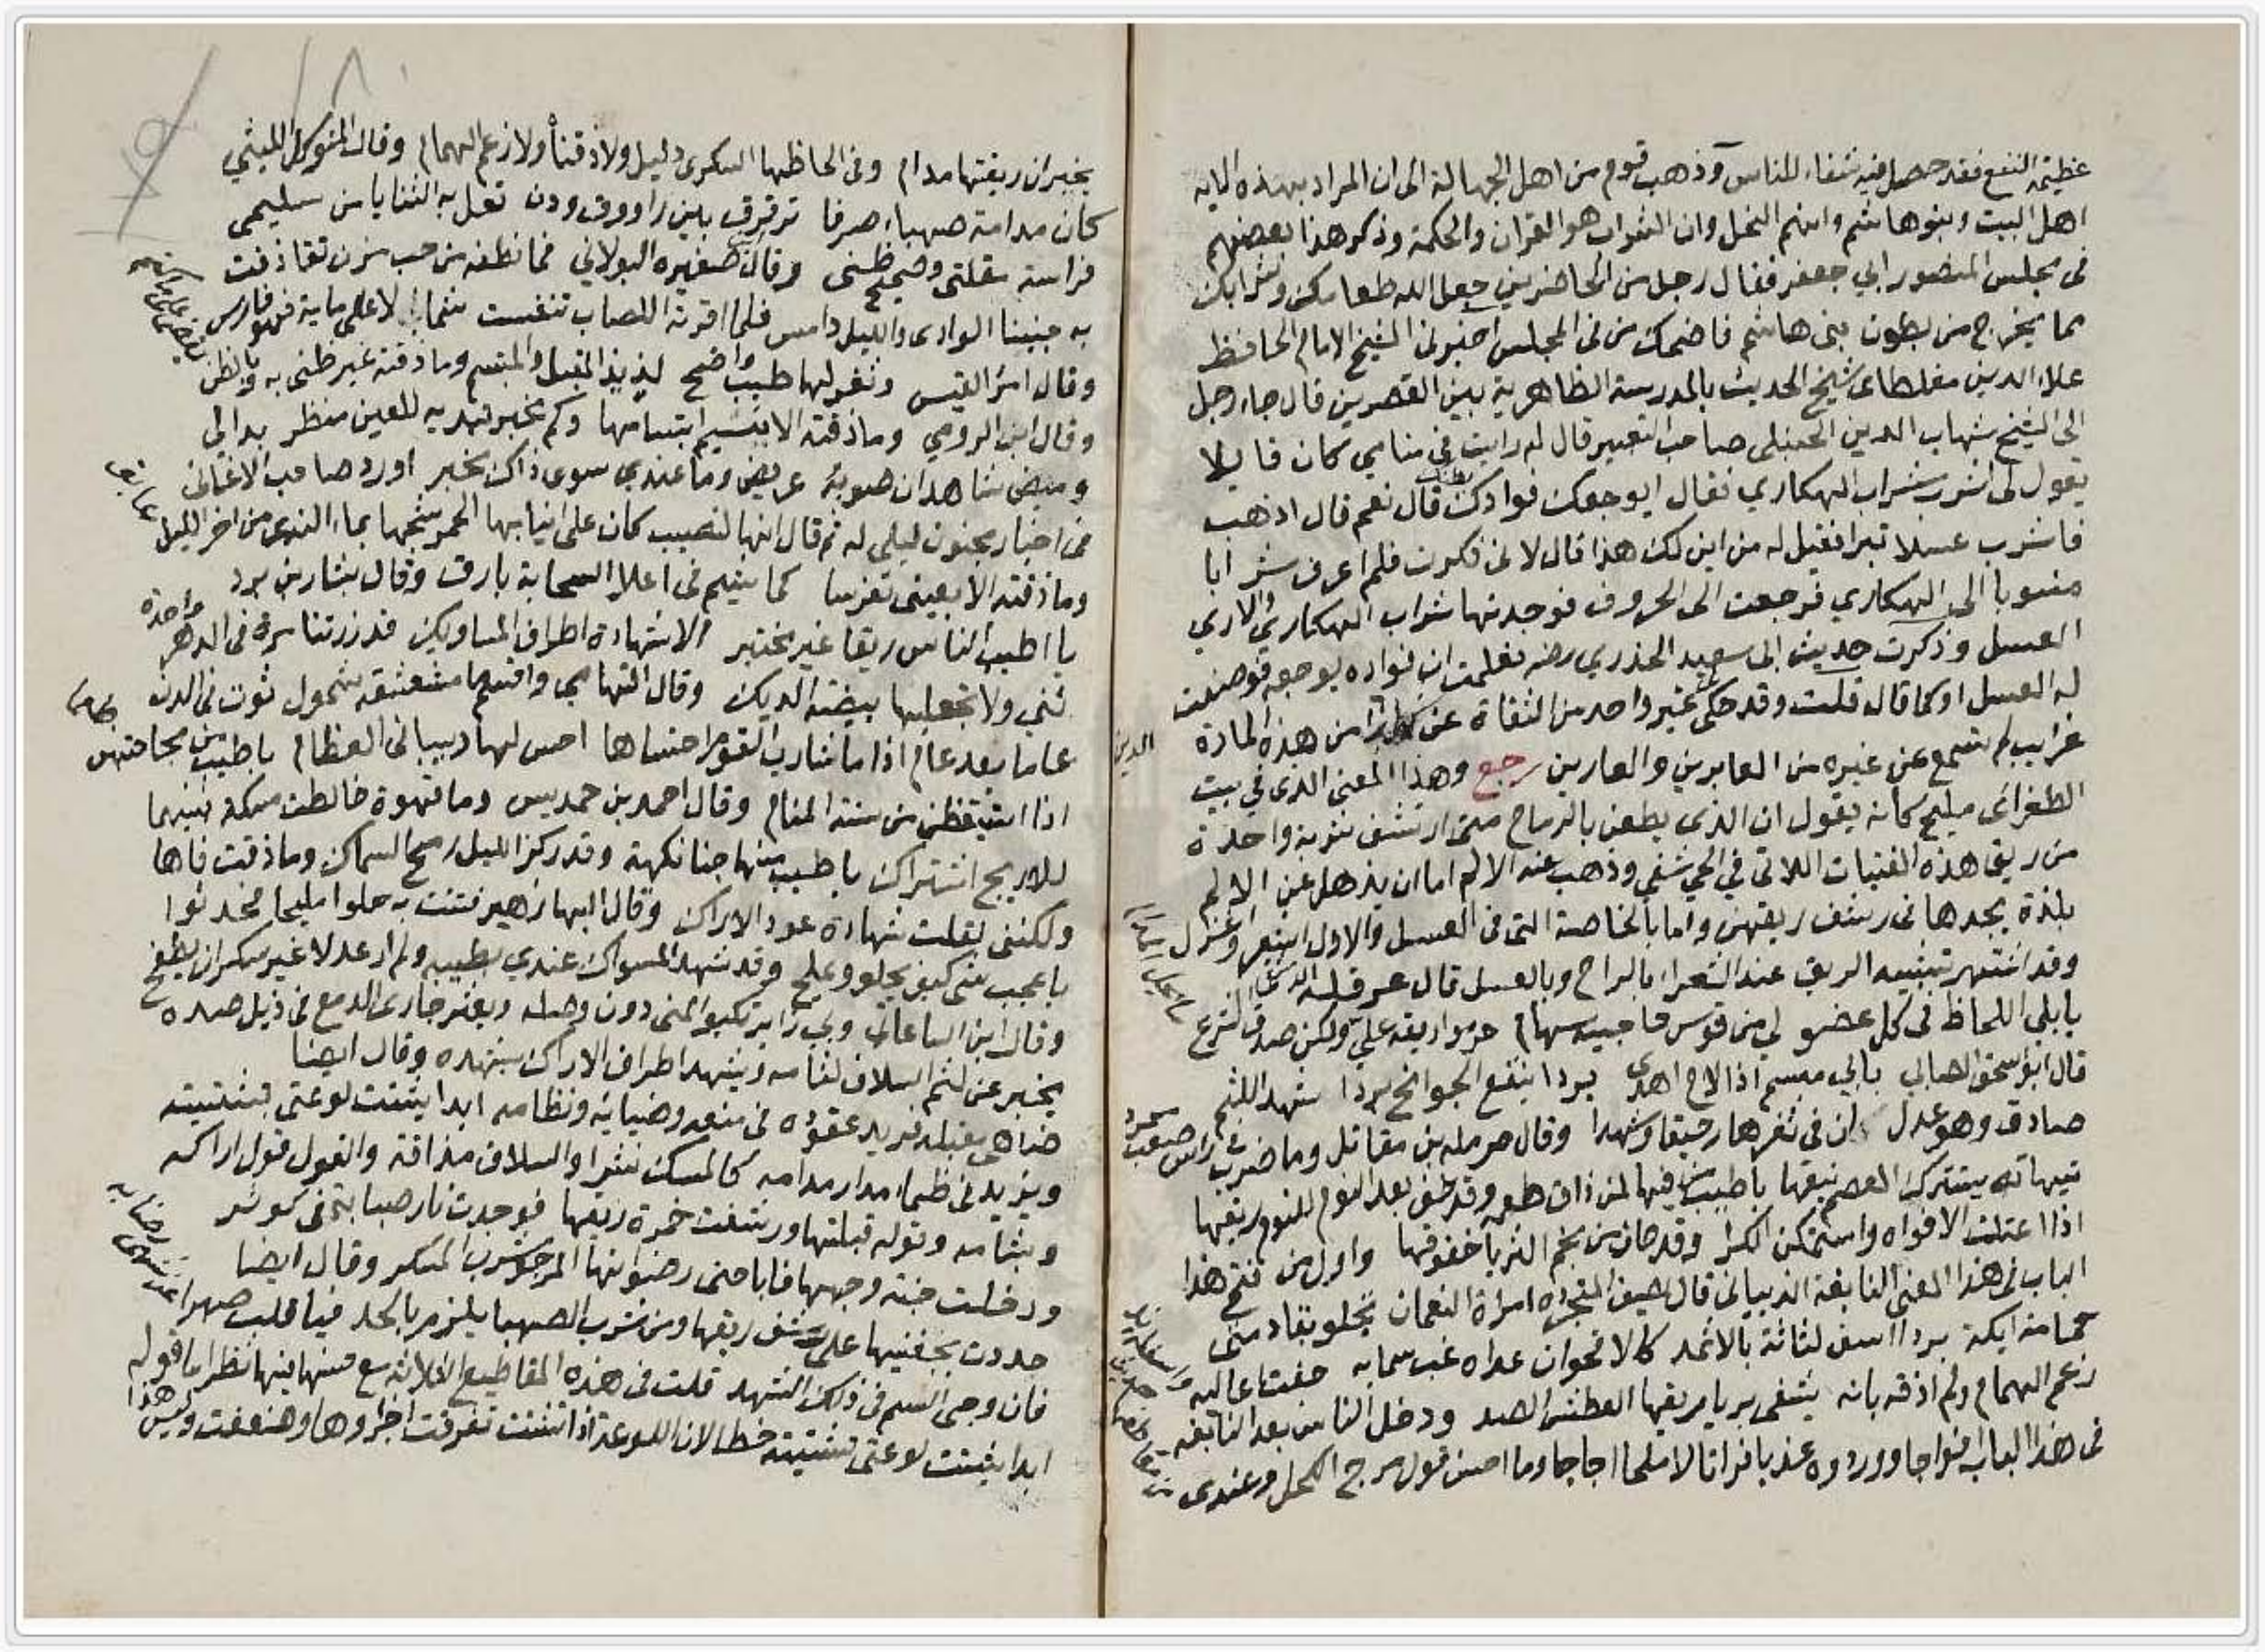 عظيمة النفع فقد حصل فيه شفاء للناس وذهب قوم من اهل الجهالة الى ان المراد بهذه الايه
اهل البيت وبنوها شم وانهم النحل وان الشراب هو القران والحكمة وذكر هذا بعضهم
فى مجلس المنصور ابي جعفر فقال رجل من الحاضرين جعل الله طعامك وشرابك
مما يخرج من بطون بنى هاشم فاضحك من فى المجلس اخبرنى الشيخ الامام الحافظ
علاء الدين مغلطاى شيخ الحديث بالمدرسة الظاهرية بين القصرين قال جاء رجل
الى الشيخ شهاب الدين الحنبلى صاحب التعبير قال له رايت فى منامي كان قايلا
يقول لى اشرب شراب الهكاري فقال ايوجعك فوادك قال نعم قال اذهب
فاشرب عسلا تبرا فقيل له من اين لك هذا قال لانى فكرت فلم اعرف شرابا
منسوبا الى الهكاري فرجعت الى الحروف فوجدتها شراب الهكاري والاري
العسل وذكرت حديث ابى سعيد الخدري رضه فعلمت ان فواده يوجعه فوصفت
له العسل او كما قال قلت وقد حكى غير واحد من الثقاة عن من هذه المادة
غرايب لم تسمع عن غيره من العابرين والعارين رجع وهذا المعنى الذى في بيت
الطغرائى مليح كانه يقول ان الذى يطعن بالرماح متى ارتشف شربة واحدة
من ريق هذه الفتيات اللاتى في الحي شفى وذهب عنه الالم اما ان يذهل عن الالم
بلذة يجدها فى رشف ريقهن واما بالخاصة التى فى العسل والاول اشعر واغزل
وقد اشتهر تشبيه الريق عند الشعراء بالراح وبالعسل قال عرقله
بابلى اللحاظ فى كل عضو لي من قوس حاجبيه سهام حرموا ريقه علي ولكن صدق الشرع
قال ابو اسحق الصابي بابي مبسم اذا لاح اهدى بردا ينقع الجوانح بردا شهد اللثم
صادق وهو عدل ان فى ثغرها رحيقا وشهدا وقال حرمله بن مقاتل وما ضرب في راس صعب
تيهاته يستترك العصم نيقها باطيب من فيها لمن ذاق طعمه وقد جف بعد النوم للنوم ريقها
اذا اعتلت الافواه واستمكن الكرا وقد حان من نجم الثريا خفوقها واول من فتح هذا
الباب فى هذا المعنى النابغة الذبيانى قال يصف المتجرده امراة النعمان تجلو بقادمتى
حمامة ايكة بردا اسف لثاثة بالاثمد كالاقحوان غداه غب سمايه جفت اعاليه
زعم الهمام ولم اذقه بانه يشفى بريا ريقها العطش الصد ودخل الناس بعد النابغه
فى هذا الباب افواجا ووردوه عذبا فراتا لا ملحا اجاجا وما احسن قول مرج الكحل وعندى
يخبر ان ريقتها مدام وفى الحاظها السكرى دليل ولا ذقنا ولا زعم الهمام وقال المتوكل الليثي
كان مدامة صهباء صرفا ترقرق بين راووق ودن تعل به الثنايا من سليمى
فراسة مقلتى وصحيح ظنى وقال صغيره البولاني فما نطفه من حب مزن تقاذفت
به جنبتا الوادى والليل دامس فلما اقرته اللصاب تنفست شمال لاعلى مايه فهو قارس
وقال امرؤ القيس وثغر لها طيب واضح لذيذ المقبل والمبتسم وما ذقته غير ظنى به وبالظن
وقال ابن الرومي وما ذقته الا بشيم ابتسامها وكم مخبر تبديه للعين منظر بدا لي
وميض شاهد ان صوبه عريض وما عندي سوى ذاك مخبر اورد صاحب الاغانى
فى اخبار مجنون ليلى له ثم قال انها لنصيب كان على انيابها الخمر شجها بماء الندى من اخر الليل
وما ذقته الا بعينى تفرسا كما شيم فى اعلا السحابة بارق وقال بشار بن برد
يا اطيب الناس ريقا غير مختبر الا شهادة اطراف المساويك قد زرتنا مرة فى الدهر واحدة
ثني ولا تجعليها بيضة الديك وقال التهامي واقسم ما مشعشقه شمول ثوت فى الدن
عاما بعد عام اذا ما شارب القوم احتساها احس لها دبيبا فى العظام باطيب من مجاجتهن
اذا استيقظن من سنة المنام وقال احمد بن حمديس وما قهوة خالطت مسكه فنيهما
للاريج اشتراك باطيب منها جنا نكهة وقد ركز الليل رمح السماك وما ذقت فاها
ولكننى لقلت شهادة عود الاراك وقال البها زهير فتنت به حلوا مليحا فحدثوا
باعجب شى كيف يحلو ويملح وقد شهد المسواك عندي بطيبه ولم ار عدلا غير سكران يطفح
وقال ابن الساعاتي وبي زاير تكبو المنى دون وصله ويعثر جارى الدمع فى ذيل صده
يخبر عن لثم السلاف لثامه ويشهد اطراف الاراك بشهده وقال ايضا
ضاهى مقبله فريد عقوده فى منعه وضيائه ونظامه ابدا يشتت لوعتى بتشتيته
ويزيد فى ظماء مدار مدامه كالمسك نشرا والسلاف مذاقة والقول قول اراكه
وبشامه وقوله قبلتها ورشفت خمرة ريقها فوجدت نار صبابة فى كوثر
ودخلت جنة وجهها فاباحنى رضوانها المرجو شرب المسكر وقال ايضا
حددت بجفنيها على رشف ريقها ومن شرب الصهبا يلزم بالحد فيا قلب صبرا
فان وحى السم فى ذلك الشهد قلت فى هذه المقاطيع الثلاثه مع حسنها فيها نظر اما قوله
ابدا يشتت لوعتى بتشتيته خطا لان اللوعة اذا تشتت تفرقت اجزاوها وضعفت وليس هذا